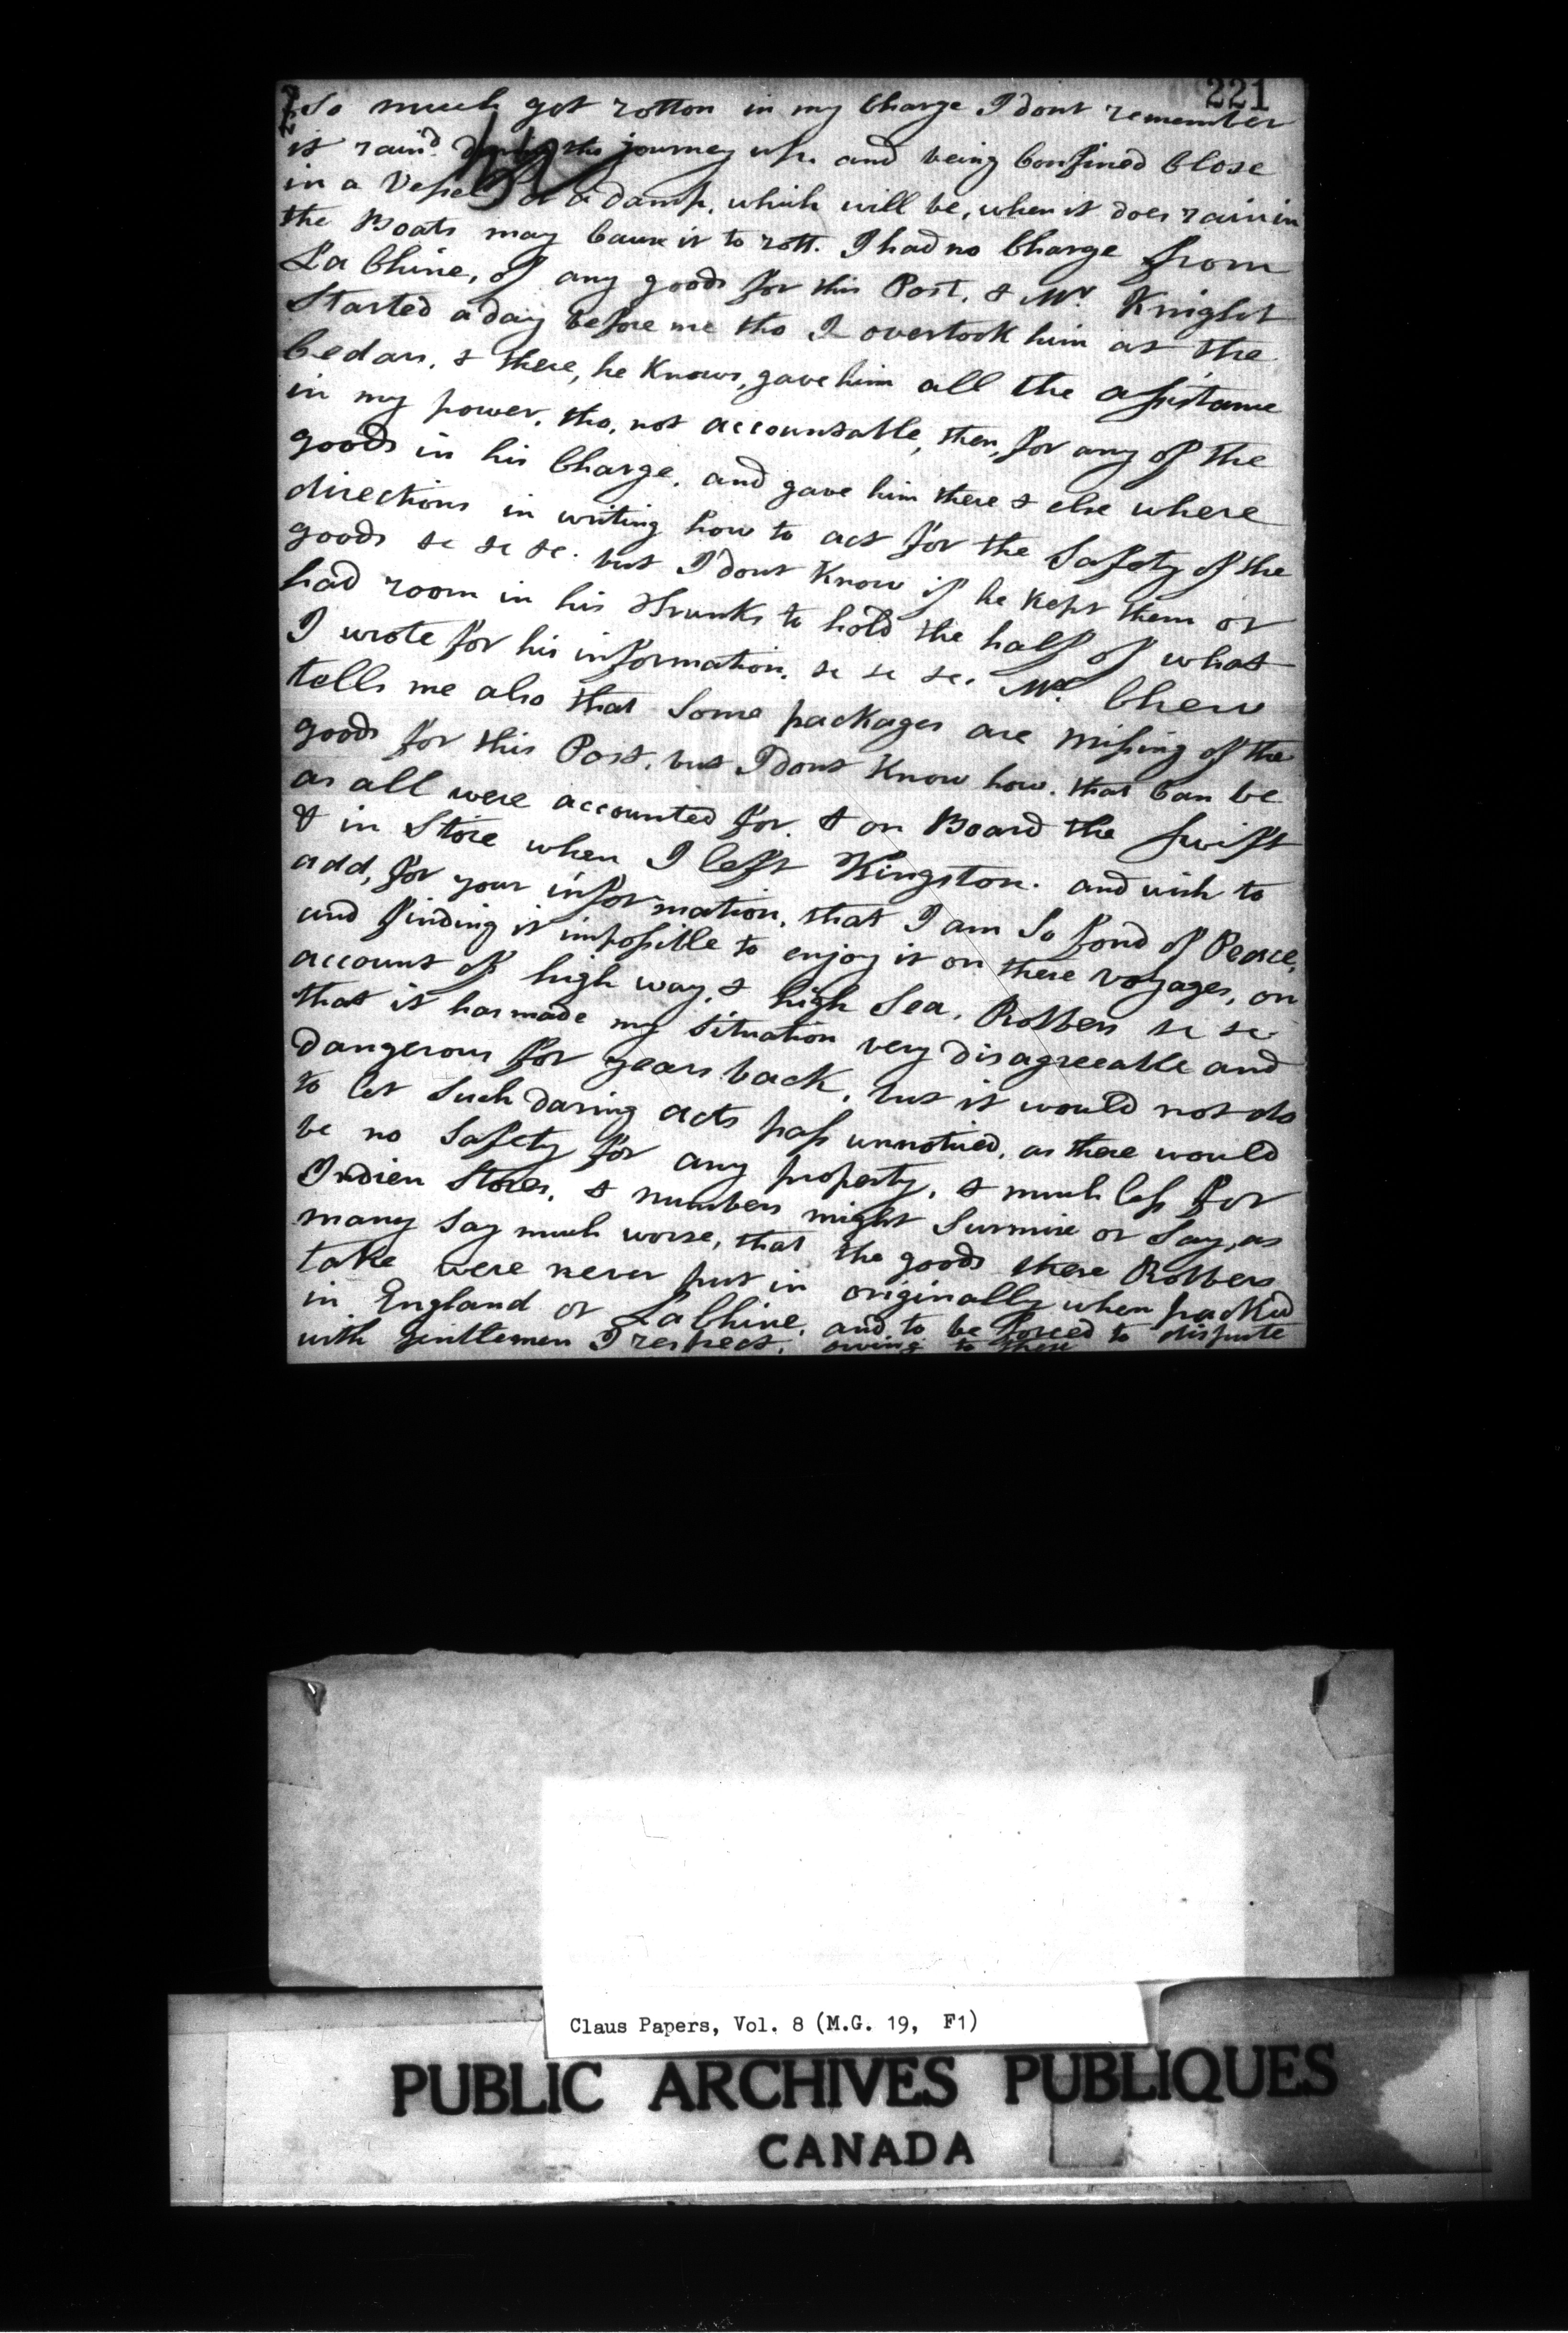 221
So much got rotton in my Charge I dont remember
it raind During the journey up. and being Confined Close
in a Vessel, & a damp, which will be, when it does rain in
the Boats may Cause it to rott. I had no Charge from
La Chine, of any goods for this Post, & Mr Knight
Started a day before me tho I overtook him at the
Cedars, & there, he Knows, gave him all the assistance
in my power, tho, not accountable, then, for any of the
goods in his Charge, and gave him there & else where
directions in writing how to act for the Safety of the
goods &c &c &c. but I dont Know if he kept them or
had room in his Trunks to hold the half of what
I wrote for his information. &c &c &c. Mr Chew
tells me also that Some packages are missing of the
goods for this Post, but I dont Know how that Can be
as all were accounted for & on Board the Swift
& in Store when I left Kingston. and wish to
add, for your information, that I am So fond of Peace,
and finding it impossible to enjoy it on these voyages, on
account of high way, & high Sea, Robbers &c &c
that it has made my Situation very disagreeable and
dangerous for years back, but it would not do
to let Such daring acts pass unnoticed, as there would
be no Safety for any property, & much less for
Indien Stores, & numbers might Surmise or Say, as
many Say much worse, that the goods these Robbers
take were never put in originally when packed
in England or La Chine, and to be forced to dispute
with gentlemen I respect, owing to these
Claus Papers, Vol. 8 (M.G. 19, F1)
PUBLIC ARCHIVES PUBLIQUES
CANADA